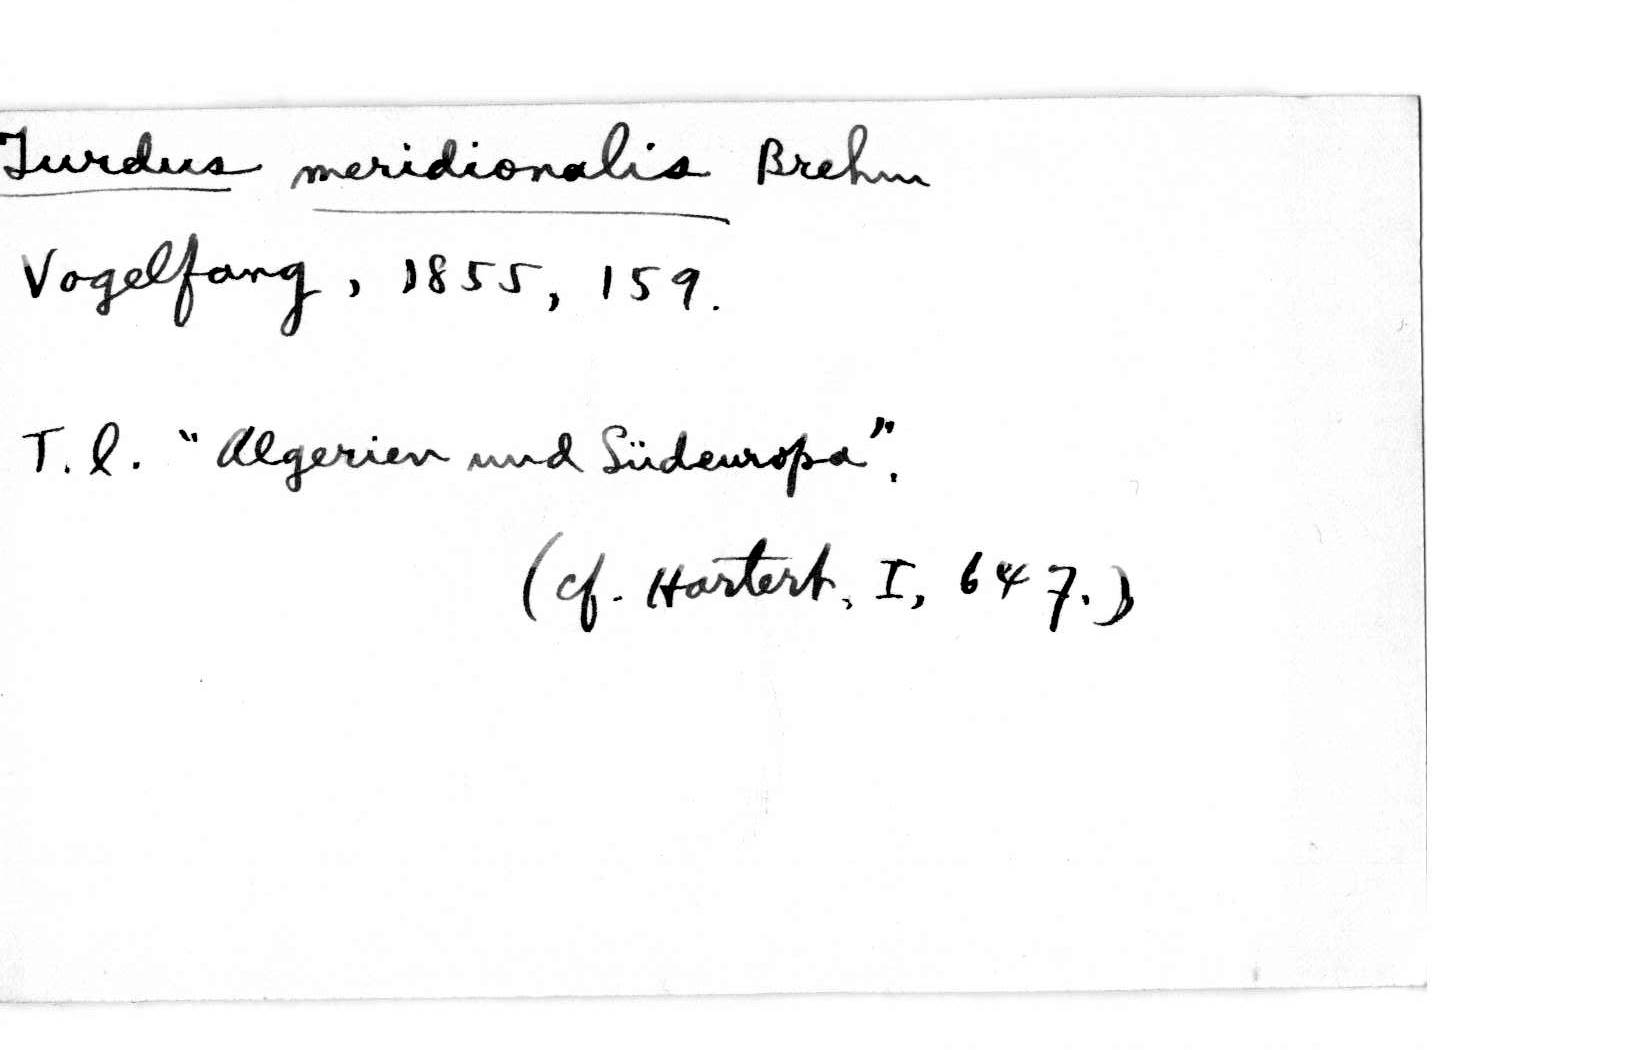 Turdus meridionalis Brehm
Vogelfang, 1855, 159.
T. l. "Algerien und Südeuropa".
(cf. Hartert, I, 647.)